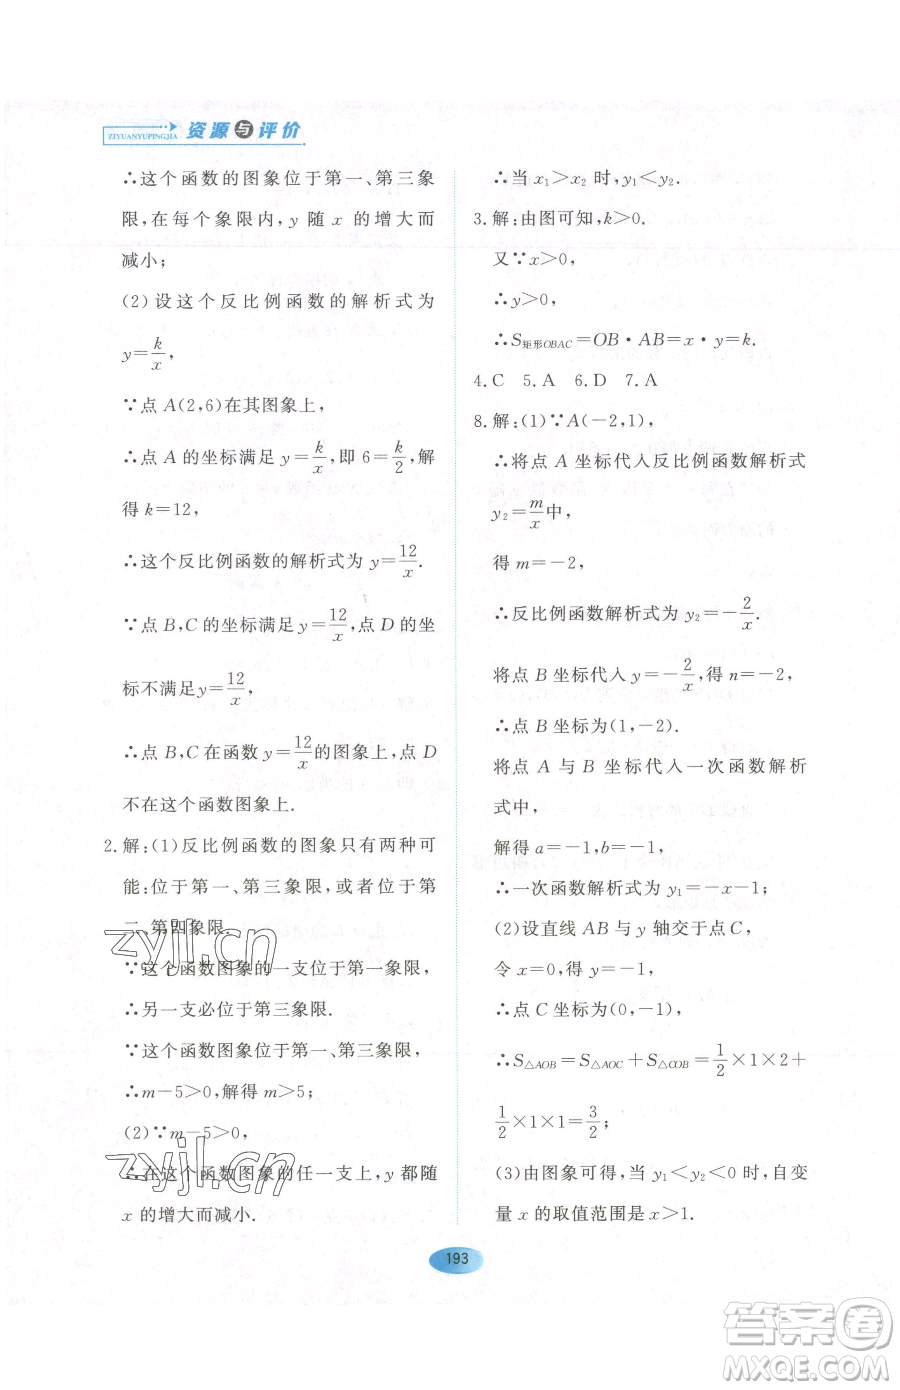 ZIYUANYUPINGJIA 资源与评价
∴这个函数的图象位于第一、第三象
限,在每个象限内,y 随 x 的增大而
减小;
(2)设这个反比例函数的解析式为
y=k/x,
∵点 A(2,6)在其图象上,
∴点 A 的坐标满足 y=k/x,即 6=k/2,解
得 k=12,
∴这个反比例函数的解析式为 y=12/x.
∵点 B,C 的坐标满足 y=12/x,点 D 的坐
标不满足y=12/x,
∴点 B,C 在函数 y=12/x的图象上,点 D
不在这个函数图象上.
2.解:(1)反比例函数的图象只有两种可
能:位于第一、第三象限,或者位于第
二、第四象限.
∵这个函数图象的一支位于第一象限,
∴另一支必位于第三象限.
∵这个函数图象位于第一、第三象限,
∴m-5>0,解得 m>5;
(2)∵m-5>0,
∴在这个函数图象的任一支上,y 都随
x 的增大而减小.
∴当 x₁>x₂ 时,y₁<y₂.
3.解:由图可知,k>0.
又∵x>0,
∴y>0,
∴S矩形OBAC=OB·AB=x·y=k.
4.C 5.A 6.D 7.A
8.解:(1)∵A(-2,1),
∴将点 A 坐标代入反比例函数解析式
y₂=m/x中,
得 m=-2,
∴反比例函数解析式为 y₂=-2/x.
将点 B 坐标代入 y=-2/x,得 n=-2,
∴点 B 坐标为(1,-2).
将点 A 与 B 坐标代入一次函数解析
式中,
解得 a=-1,b=-1,
∴一次函数解析式为 y₁=-x-1;
(2)设直线 AB 与 y 轴交于点 C,
令 x=0,得 y=-1,
∴点 C 坐标为(0,-1),
∴S△AOB=S△AOC+S△COB=1/2×1×2+
1/2×1×1=3/2;
(3)由图象可得,当 y₁<y₂<0 时,自变
量 x 的取值范围是 x>1.
193
zyjl.cn
zyjl.cn
答案圈
MXQE.COM